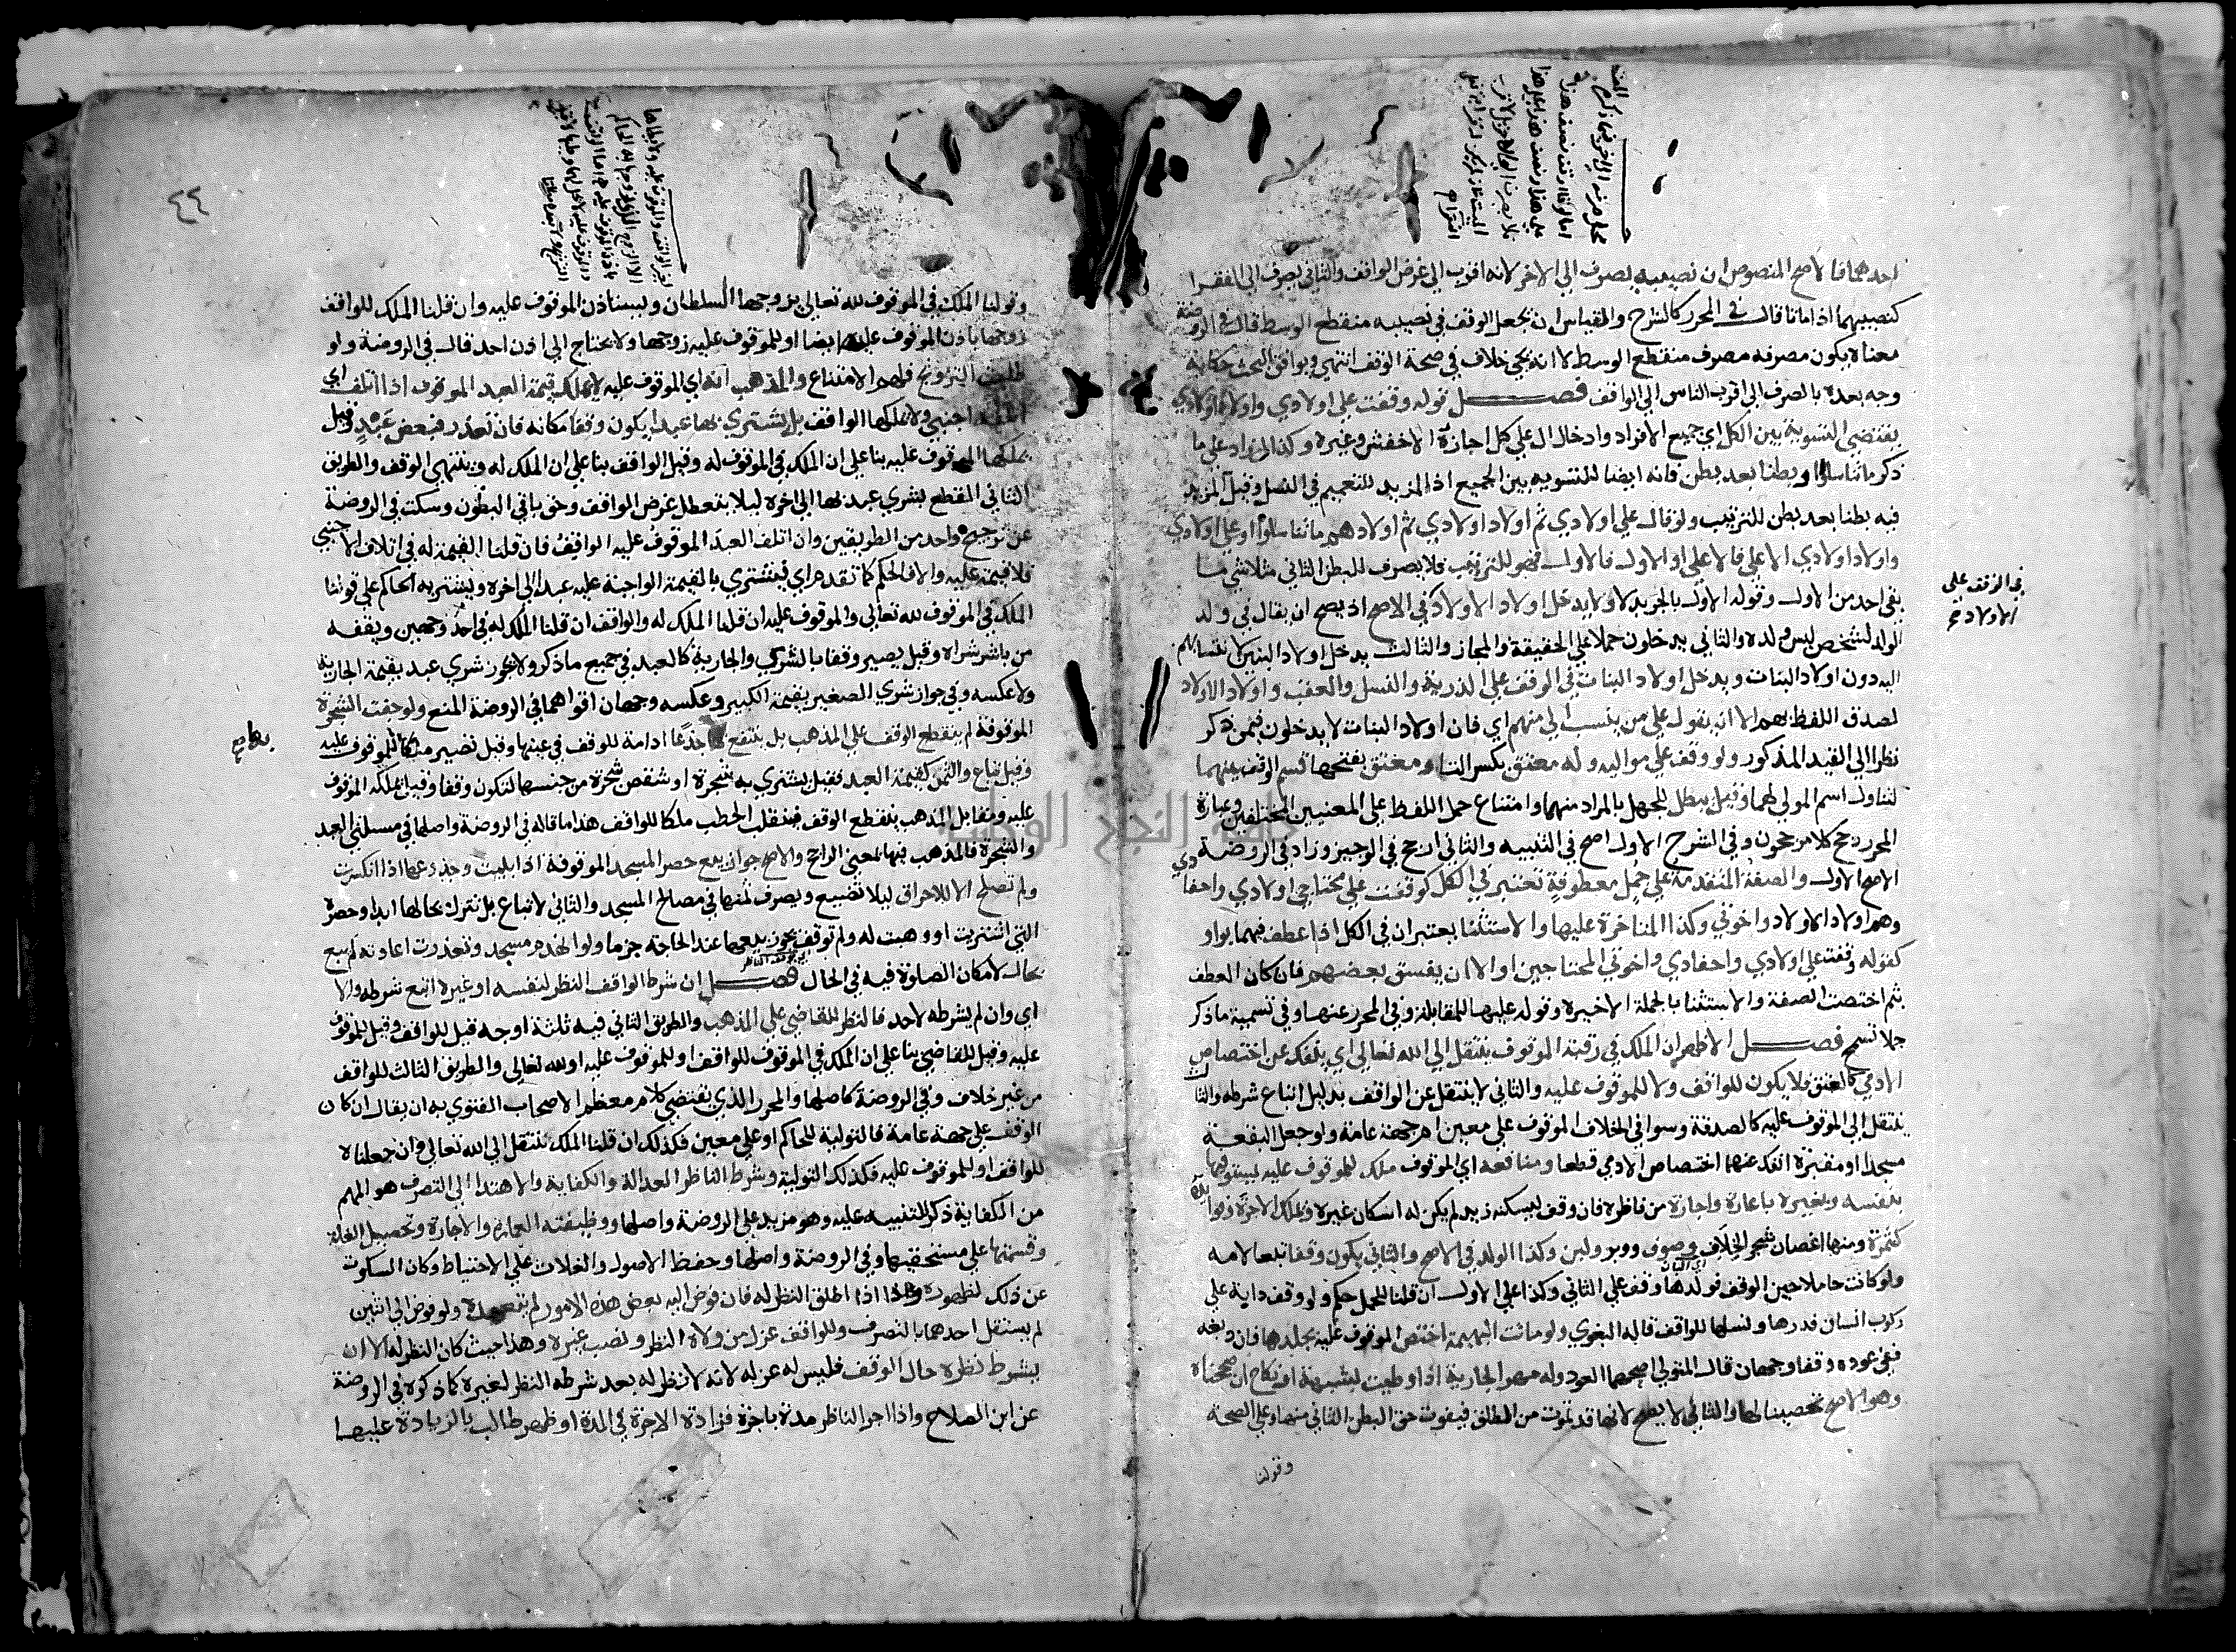 احدهما فالاصح المنصوص ان نصيبه يصرف الي الاخر لانه اقرب الي غرض الواقف والثاني يصرف الي الفقرا
كنصيبهما اذا ماتا قال في المحرر كالشرح والقياس ان يجعل الوقف في نصيبه منقطع الوسط قال في الروضة
معناه يكون مصرفه مصرف منقطع الوسط لا انه يجي خلاف في صحة الوقف انتهي ويوافق البحث حكاية
وجه بعده بالصرف الي اقرب الناس الي الواقف فصل قوله وقفت علي اولادي واولاد اولادي
يقتضي التسوية بين الكل اي جميع الافراد وادخال ال علي كل اجازه الاخفش وغيره وكذا لو زاد علي ما
ذكر ما تناسلوا او بطنا بعد بطن فانه ايضا للتسوية بين الجميع اذ المزيد للتعميم في النسل وقيل المزيد
فيه بطنا بعد بطن للترتيب ولو قال علي اولادي ثم اولاد اولادي ثم اولادهم ما تناسلوا او علي اولادي
واولاد اولادي الاعلي فالاعلي او الاول فالاول فهو للترتيب فلا يصرف للبطن الثاني مثلا شي ما
بقي احد من الاول وقوله الاول بالجر بدلا ولا يدخل اولاد الاولاد في الاصح اذ يصح ان يقال في ولد
الولد لشخص ليس ولده والثاني يدخلون حملا علي الحقيقة والمجاز والثالث يدخل اولاد البنين لانتسابهم
اليه دون اولاد البنات ويدخل اولاد البنات في الوقف علي الذرية والنسل والعقب واولاد الاولاد
لصدق اللفظ بهم الا ان يقول علي من ينسب الي منهم اي فان اولاد البنات لا يدخلون فيمن ذكر
نظرا الي القيد المذكور ولو وقف علي مواليه وله معتق بكسر التا ومعتق بفتحها قسم الوقف بينهما
لتناول اسم المولي لهما وقيل يبطل للجهل بالمراد منهما وامتناع حمل اللفظ علي المعنيين المختلفين وعبارة
المحرر رجح كلا مرجحون وفي الشرح الاول اصح في التنبيه والثاني ارجح في الوجيز وزاد في الروضة
الاصح الاول والصفة المتقدمة علي جمل معطوفة تعتبر في الكل كوقفت علي محتاجي اولادي واحفادي
وهم اولاد الاولاد واخوتي وكذا المتاخرة عليها والاستثنا يعتبران في الكل اذا عطف فيهما بواو
كقوله وقفت علي اولادي واحفادي واخوتي المحتاجين او الا ان يفسق بعضهم فان كان العطف
بثم اختصت الصفة والاستثنا بالجملة الاخيرة وقوله عليها للمقابلة وفي المحرر عنها وفي تسمية ما ذكر
جملا تسمح فصل الاظهر ان الملك في رقبة الموقوف ينتقل الي الله تعالي اي ينفك عن اختصاص
الادمي كالعتق فلا يكون للواقف ولا للموقوف عليه والثاني لا ينتقل عن الواقف بدليل اتباع شرطه والثالث
ينتقل الي الموقوف عليه كالصدقة وسوا في الخلاف الموقوف علي معين ام جهة عامة ولو جعل البقعة
مسجدا او مقبرة انفك عنها اختصاص الادمي قطعا ومنافعه اي الموقوف ملك للموقوف عليه يستوفيها
بنفسه وبغيره باعارة واجارة من ناظره فان وقف ليسكنه زيد لم يكن له اسكان غيره ويملك الاجرة وفوايده
كثمرة ومنها اغصان شجر الخلاف وصوف ووبر ولبن وكذا الولد في الاصح والثاني يكون وقفا تبعا لامه
ولو كانت حاملا حين الوقف فولدها وقف علي الثاني وكذا علي الاول ان قلنا للحمل حكم ولو وقف دابة علي
ركوب انسان فدرها ونسلها للواقف قاله البغوي ولو ماتت البهيمة اختص الموقوف عليه بجلدها فان دبغه
ففي عوده وقفا وجهان قال المتولي اصحهما العود وله مهر الجارية اذا وطيت بشبهة او نكاح ان صححناه
وهو الاصح تحصينا لها والثاني لا يصح لانها قد تموت من الطلق فيفوت حق البطن الثاني منها وعلي الصحة
وقولنا
في الوقف علي
الاولاد
٤٤
وقولنا الملك في الموقوف لله تعالي يزوجها السلطان ويستاذن الموقوف عليه وان قلنا الملك للواقف
زوجها باذن الموقوف عليه ايضا او للموقوف عليه زوجها ولا يحتاج الي اذن احد قال في الروضة ولو
طلبت التزويج فلهم الامتناع والمذهب انه اي الموقوف عليه لا يملك قيمة العبد الموقوف اذا اتلف اي
اتلفه اجنبي ولا يملكها الواقف بل يشتري بها عبدا يكون وقفا مكانه فان تعذر فبعض عبد وقيل
يملكها الموقوف عليه بنا علي ان الملك في الموقوف له وقيل الواقف بنا علي ان الملك له وينتهي الوقف والطريق
الثاني القطع بشري عبد بها الي اخره ليلا يتعطل غرض الواقف وحق باقي البطون وسكت في الروضة
عن ترجيح واحد من الطريقين وان اتلف العبد الموقوف عليه او الواقف فان قلنا القيمة له في اتلاف الاجنبي
فلا قيمة عليه والا فالحكم كما تقدم اي فيشتري بالقيمة الواجبة عليه عبدا الي اخره ويشتريه الحاكم علي قولنا
الملك في الموقوف لله تعالي والموقوف عليه ان قلنا الملك له والواقف ان قلنا الملك له في احد وجهين ويقفه
من باشر شراه وقيل يصير وقفا بالشري والجارية كالعبد في جميع ما ذكر ولا يجوز شري عبد بقيمة الجارية
ولا عكسه وفي جواز شري الصغير بقيمة الكبير وعكسه وجهان اقواهما في الروضة المنع ولو جفت الشجرة
الموقوفة لم ينقطع الوقف علي المذهب بل ينتفع بها جذعا ادامة للوقف في عينها وقيل تصير ملكا للموقوف عليه
وقيل تباع والثمن كقيمة العبد فقيل يشتري به شجرة او شقص شجرة من جنسها لتكون وقفا وقيل يملكه الموقوف
عليه ومقابل المذهب ينقطع الوقف فينقلب الحطب ملكا للواقف هذا ما قاله في الروضة واصلها في مسئلتي العبد
والشجرة فالمذهب فيها بمعني الراجح والاصح جواز بيع حصر المسجد الموقوفة اذا بليت وجذوعها اذا انكسرت
ولم تصلح الا للاحراق ليلا تضيع ويصرف ثمنها في مصالح المسجد والثاني لا تباع بل تترك بحالها ابدا وحصره
التي اشتريت او وهبت له ولم توقف يجوز بيعها عند الحاجة جزما ولو انهدم مسجد وتعذرت اعادته لم يبع
بحال لامكان الصلوة فيه في الحال فصل ان شرط الواقف النظر لنفسه او غيره اتبع شرطه والا
اي وان لم يشرطه لاحد فالنظر للقاضي علي المذهب والطريق الثاني فيه ثلثة اوجه قيل للواقف وقيل للموقوف
عليه وقيل للقاضي بنا علي ان الملك في الموقوف للواقف او للموقوف عليه او لله تعالي والطريق الثالث للواقف
من غير خلاف وفي الروضة كاصلها والمحرر الذي يقتضي كلام معظم الاصحاب الفتوي به ان يقال ان كان
الوقف علي جهة عامة فالتولية للحاكم او علي معين فكذلك ان قلنا الملك ينتقل الي الله تعالي وان جعلناه
للواقف او للموقوف عليه فكذلك التولية وشرط الناظر العدالة والكفاية والاهتدا الي التصرف هو المهم
من الكفاية ذكر للتنبيه عليه وهو مزيد علي الروضة واصلها ووظيفته العمارة والاجارة وتحصيل الغلة
وقسمتها علي مستحقيها وفي الروضة واصلها وحفظ الاصول والغلات علي الاحتياط وكان السكوت
عن ذلك لظهوره وهذا اذا اطلق النظر له فان فوض اليه بعض هذه الامور لم يتعده ولو فوض الي اثنين
لم يستقل احدهما بالتصرف وللواقف عزل من ولاه النظر ونصب غيره وهذا حيث كان النظر له الا ان
يشرط نظره حال الوقف فليس له عزله لانه لا نظر له بعد شرطه النظر لغيره كما ذكره في الروضة
عن ابن الصلاح واذا اجر الناظر مدة باجرة فزادت الاجرة في المدة او ظهر طالب بالزيادة عليها